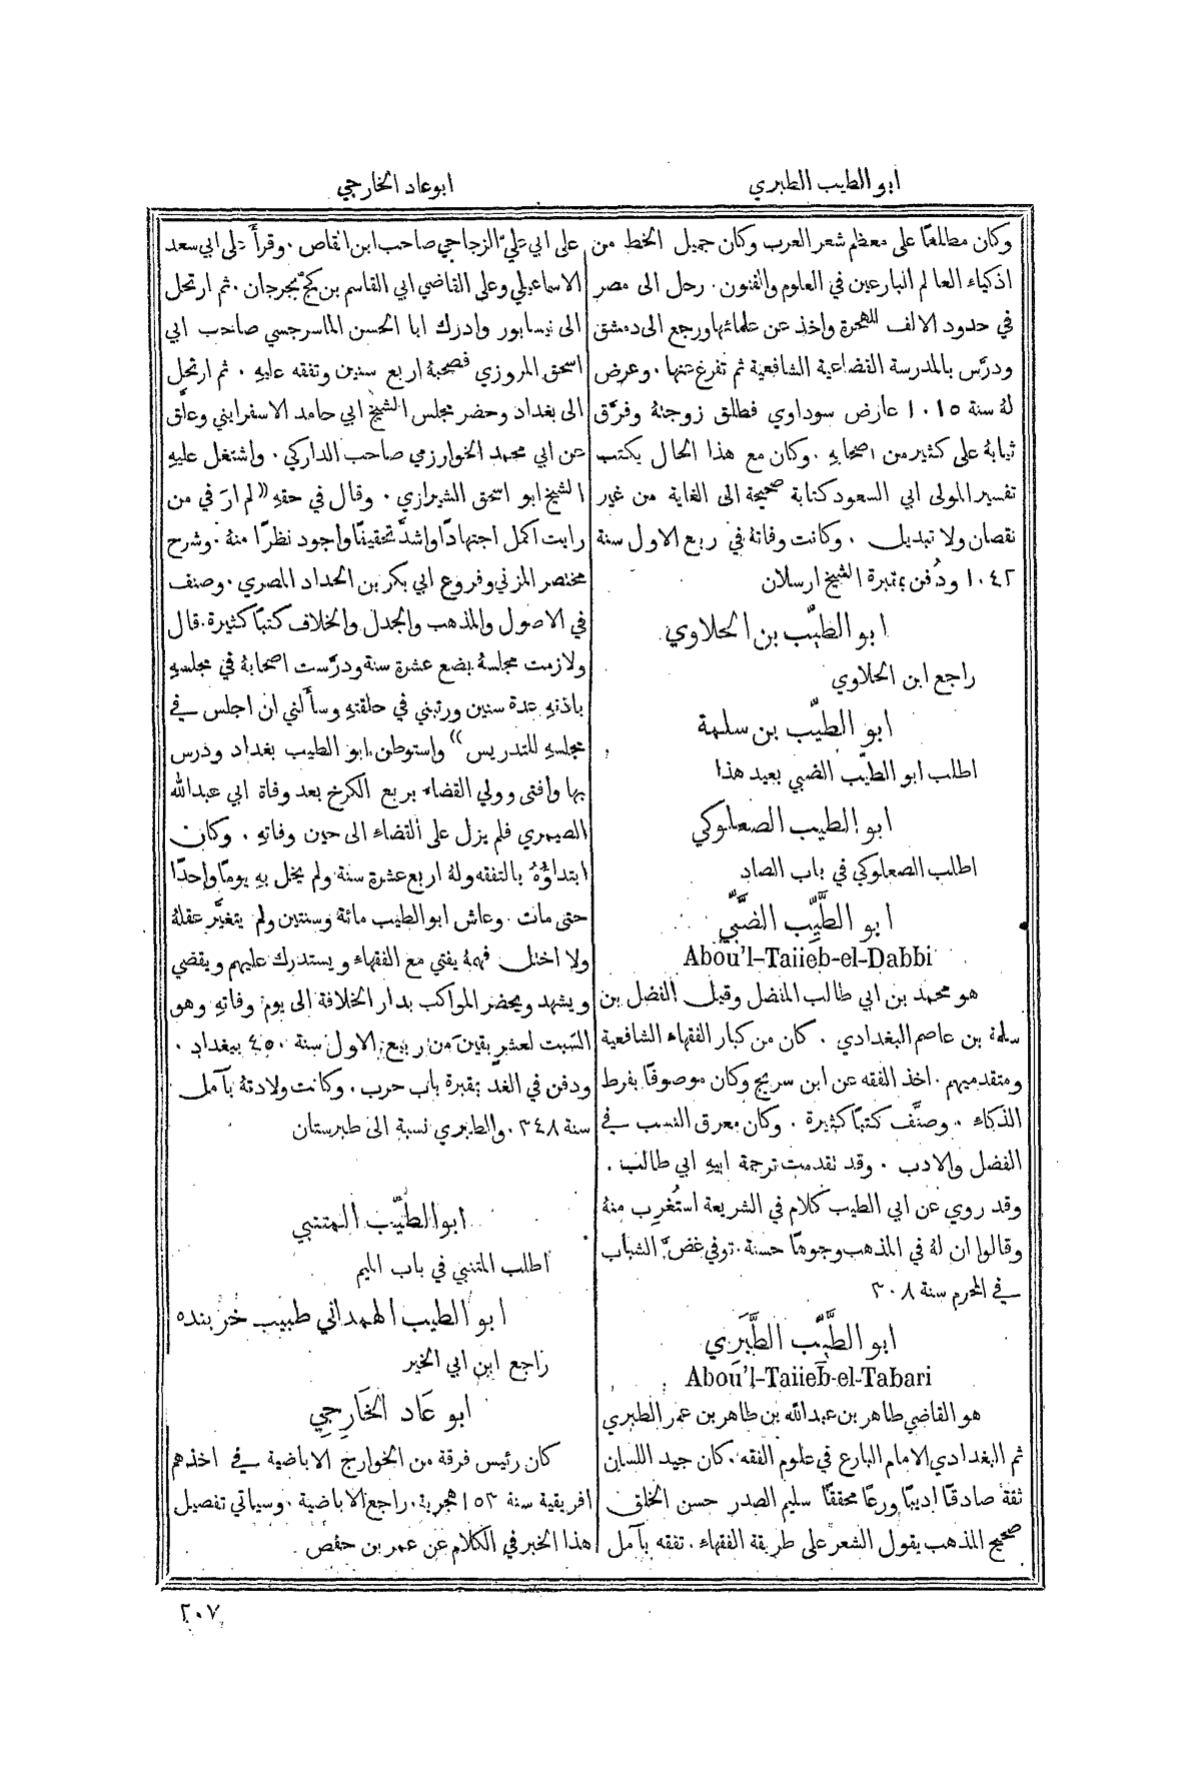 ابو الطيب الطبري
ابو عاد الخارجي
وكان مطلعًا على معظم شعر العرب وكان جميل الخط من
اذكياء العالم البارعين في العلوم والفنون. رحل الى مصر
في حدود الالف للهجرة واخذ عن علمائها ورجع الى دمشق
ودرّس بالمدرسة القضاعية الشافعية ثم تفرغ عنها. وعرض
لهُ سنة ١٠١٥ عارض سوداوي فطلق زوجتهُ وفرّق
ثيابهُ على كثير من اصحابهِ. وكان مع هذا الحال يكتب
تفسير المولى ابي السعود كتابة صحيحة الى الغاية من غير
نقصان ولا تبديل. وكانت وفاتهُ في ربع الاول سنة
١٠٤٢ ودُفن بمقبرة الشيخ ارسلان
ابو الطيّب بن الحلاوي
راجع ابن الحلاوي
ابو الطيّب بن سلمة
اطلب ابو الطيّب الضبي بعيد هذا
ابو الطيب الصعلوكي
اطلب الصعلوكي في باب الصاد
ابو الطَّيِّب الضَّبِّيّ
Abou'l-Taiieb-el-Dabbi
هو محمد بن ابي طالب المفضل وقيل الفضل بن
سلمة بن عاصم البغدادي. كان من كبار الفقهاء الشافعية
ومتقدميهم. اخذ الفقه عن ابن سريج وكان موصوفًا بفرط
الذكاء. وصنَّف كتبًا كثيرة. وكان معرق النسب في
الفضل والادب. وقد تقدمت ترجمة ابيهِ ابي طالب.
وقد روي عن ابي الطيب كلام في الشريعة استُغرِب منهُ
وقالوا ان لهُ في المذهب وجوهًا حسنة. توفي غضّ الشباب
في المحرم سنة ٣٠٨
ابو الطَّيِّب الطَّبَرِي
Abou'l-Taiieb-el-Tabari
هو القاضي طاهر بن عبدالله بن طاهر بن عمر الطبري
ثم البغدادي الامام البارع في علوم الفقه. كان جيد اللسان
ثقة صادقًا اديبًا ورعًا محققًا سليم الصدر حسن الخلق
صحيح المذهب يقول الشعر على طريقة الفقهاء. تفقه بآمل
على ابي علي الزجاجي صاحب ابن القاص. وقرأ على ابي سعد
الاسماعيلي وعلى القاضي ابي القاسم بن كج بجرجان. ثم ارتحل
الى نيسابور وادرك ابا الحسن الماسرجسي صاحب ابي
اسحق المروزي فصحبهُ اربع سنين وتفقه عليهِ. ثم ارتحل
الى بغداد وحضر مجلس الشيخ ابي حامد الاسفرايني وعلّق
عن ابي محمد الخوارزمي صاحب الداركي. واشتغل عليهِ
الشيخ ابو اسحق الشيرازي. وقال في حقهِ «لم ارَ في من
رايت اكمل اجتهادًا واشدَّ تحقيقًا واجود نظرًا منهُ. وشرح
مختصر المزني وفروع ابي بكر بن الحداد المصري. وصنف
في الاصول والمذهب والجدل والخلاف كتبًا كثيرة. قال
ولازمت مجلسهُ بضع عشرة سنة ودرّست اصحابهُ في مجلسهِ
باذنهِ عدة سنين ورتبني في حلقتهِ وسألني ان اجلس في
مجلسهِ للتدريس» واستوطن ابو الطيب بغداد ودرس
بها وافتى وولي القضاء بربع الكرخ بعد وفاة ابي عبدالله
الصيمري فلم يزل على القضاء الى حين وفاتهِ. وكان
ابتداؤُهُ بالتفقه ولهُ اربع عشرة سنة ولم يخل بهِ يومًا واحدًا
حتى مات. وعاش ابو الطيب مائة وسنتين ولم يتغيَّر عقلهُ
ولا اختل فهمهُ يفتي مع الفقهاء ويستدرك عليهم ويقضي
ويشهد ويحضر المواكب بدار الخلافة الى يوم وفاتهِ وهو
السبت لعشر بقينَ من ربيع الاول سنة ٤٥٠ ببغداد.
ودفن في الغد بمقبرة باب حرب. وكانت ولادتهُ بآمل
سنة ٣٤٨. والطبري نسبة الى طبرستان
ابو الطيّب المتنبي
اطلب المتنبي في باب الميم
ابو الطيب الهمداني طبيب خربنده
راجع ابن ابي الخير
ابو عَاد الخَارِجِي
كان رئيس فرقة من الخوارج الاباضية في اخذهم
افريقية سنة ١٥٣ هجرية. راجع الاباضية. وسياتي تفصيل
هذا الخبر في الكلام عن عمر بن حفص.
٢٠٧